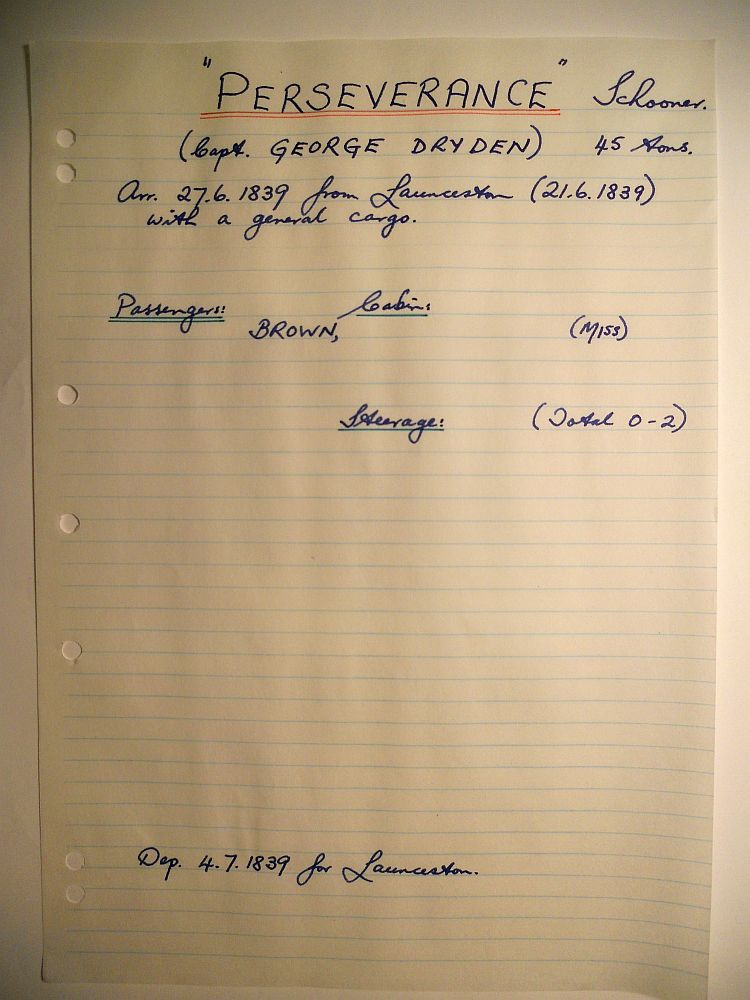 "PERSEVERANCE" Schooner.
(Capt. GEORGE DRYDEN) 45 tons.
Arr. 27.6.1839 from Launceston (21.6.1839)
with a general cargo.
Passengers: Cabin:
BROWN, (MISS)
Steerage: (Total 0-2)
Dep. 4.7.1839 for Launceston.